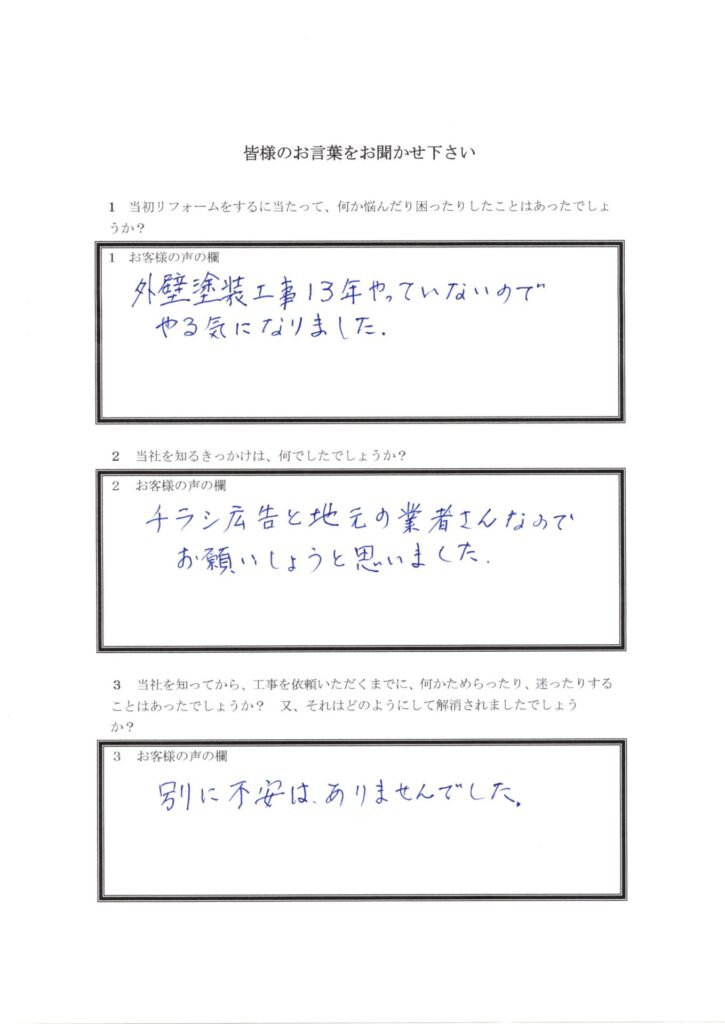 皆様のお言葉をお聞かせ下さい
1 当初リフォームをするに当たって、何か悩んだり困ったりしたことはあったでしょ
うか？
1 お客様の声の欄
外壁塗装工事13年やっていないので
やる気になりました.
2 当社を知るきっかけは、何でしたでしょうか？
2 お客様の声の欄
チラシ広告と地元の業者さんなので
お願いしようと思いました.
3 当社を知ってから、工事を依頼いただくまでに、何かためらったり、迷ったりする
ことはあったでしょうか？ 又、それはどのようにして解消されましたでしょう
か？
3 お客様の声の欄
別に不安は、ありませんでした。